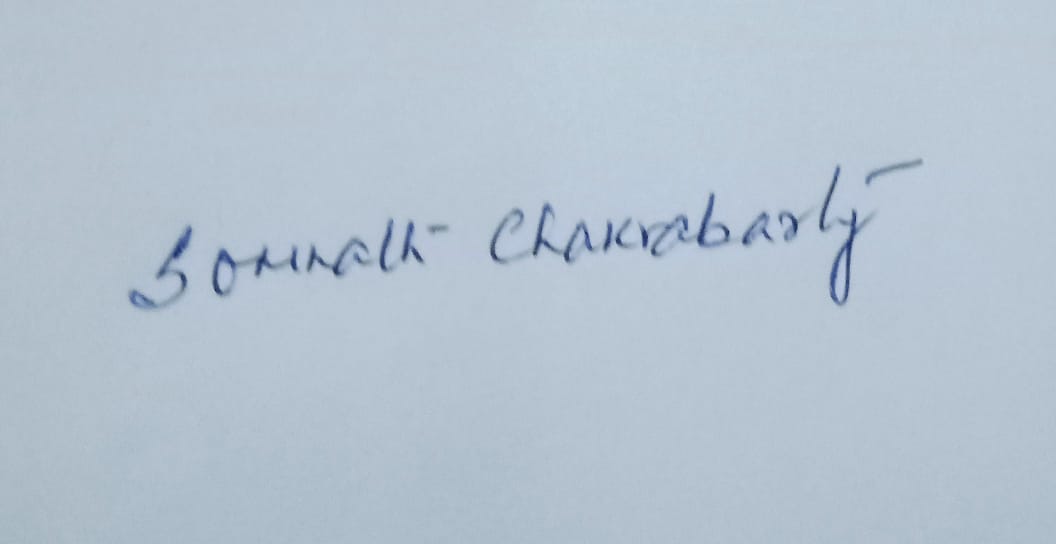 Somnath Chakrabarty